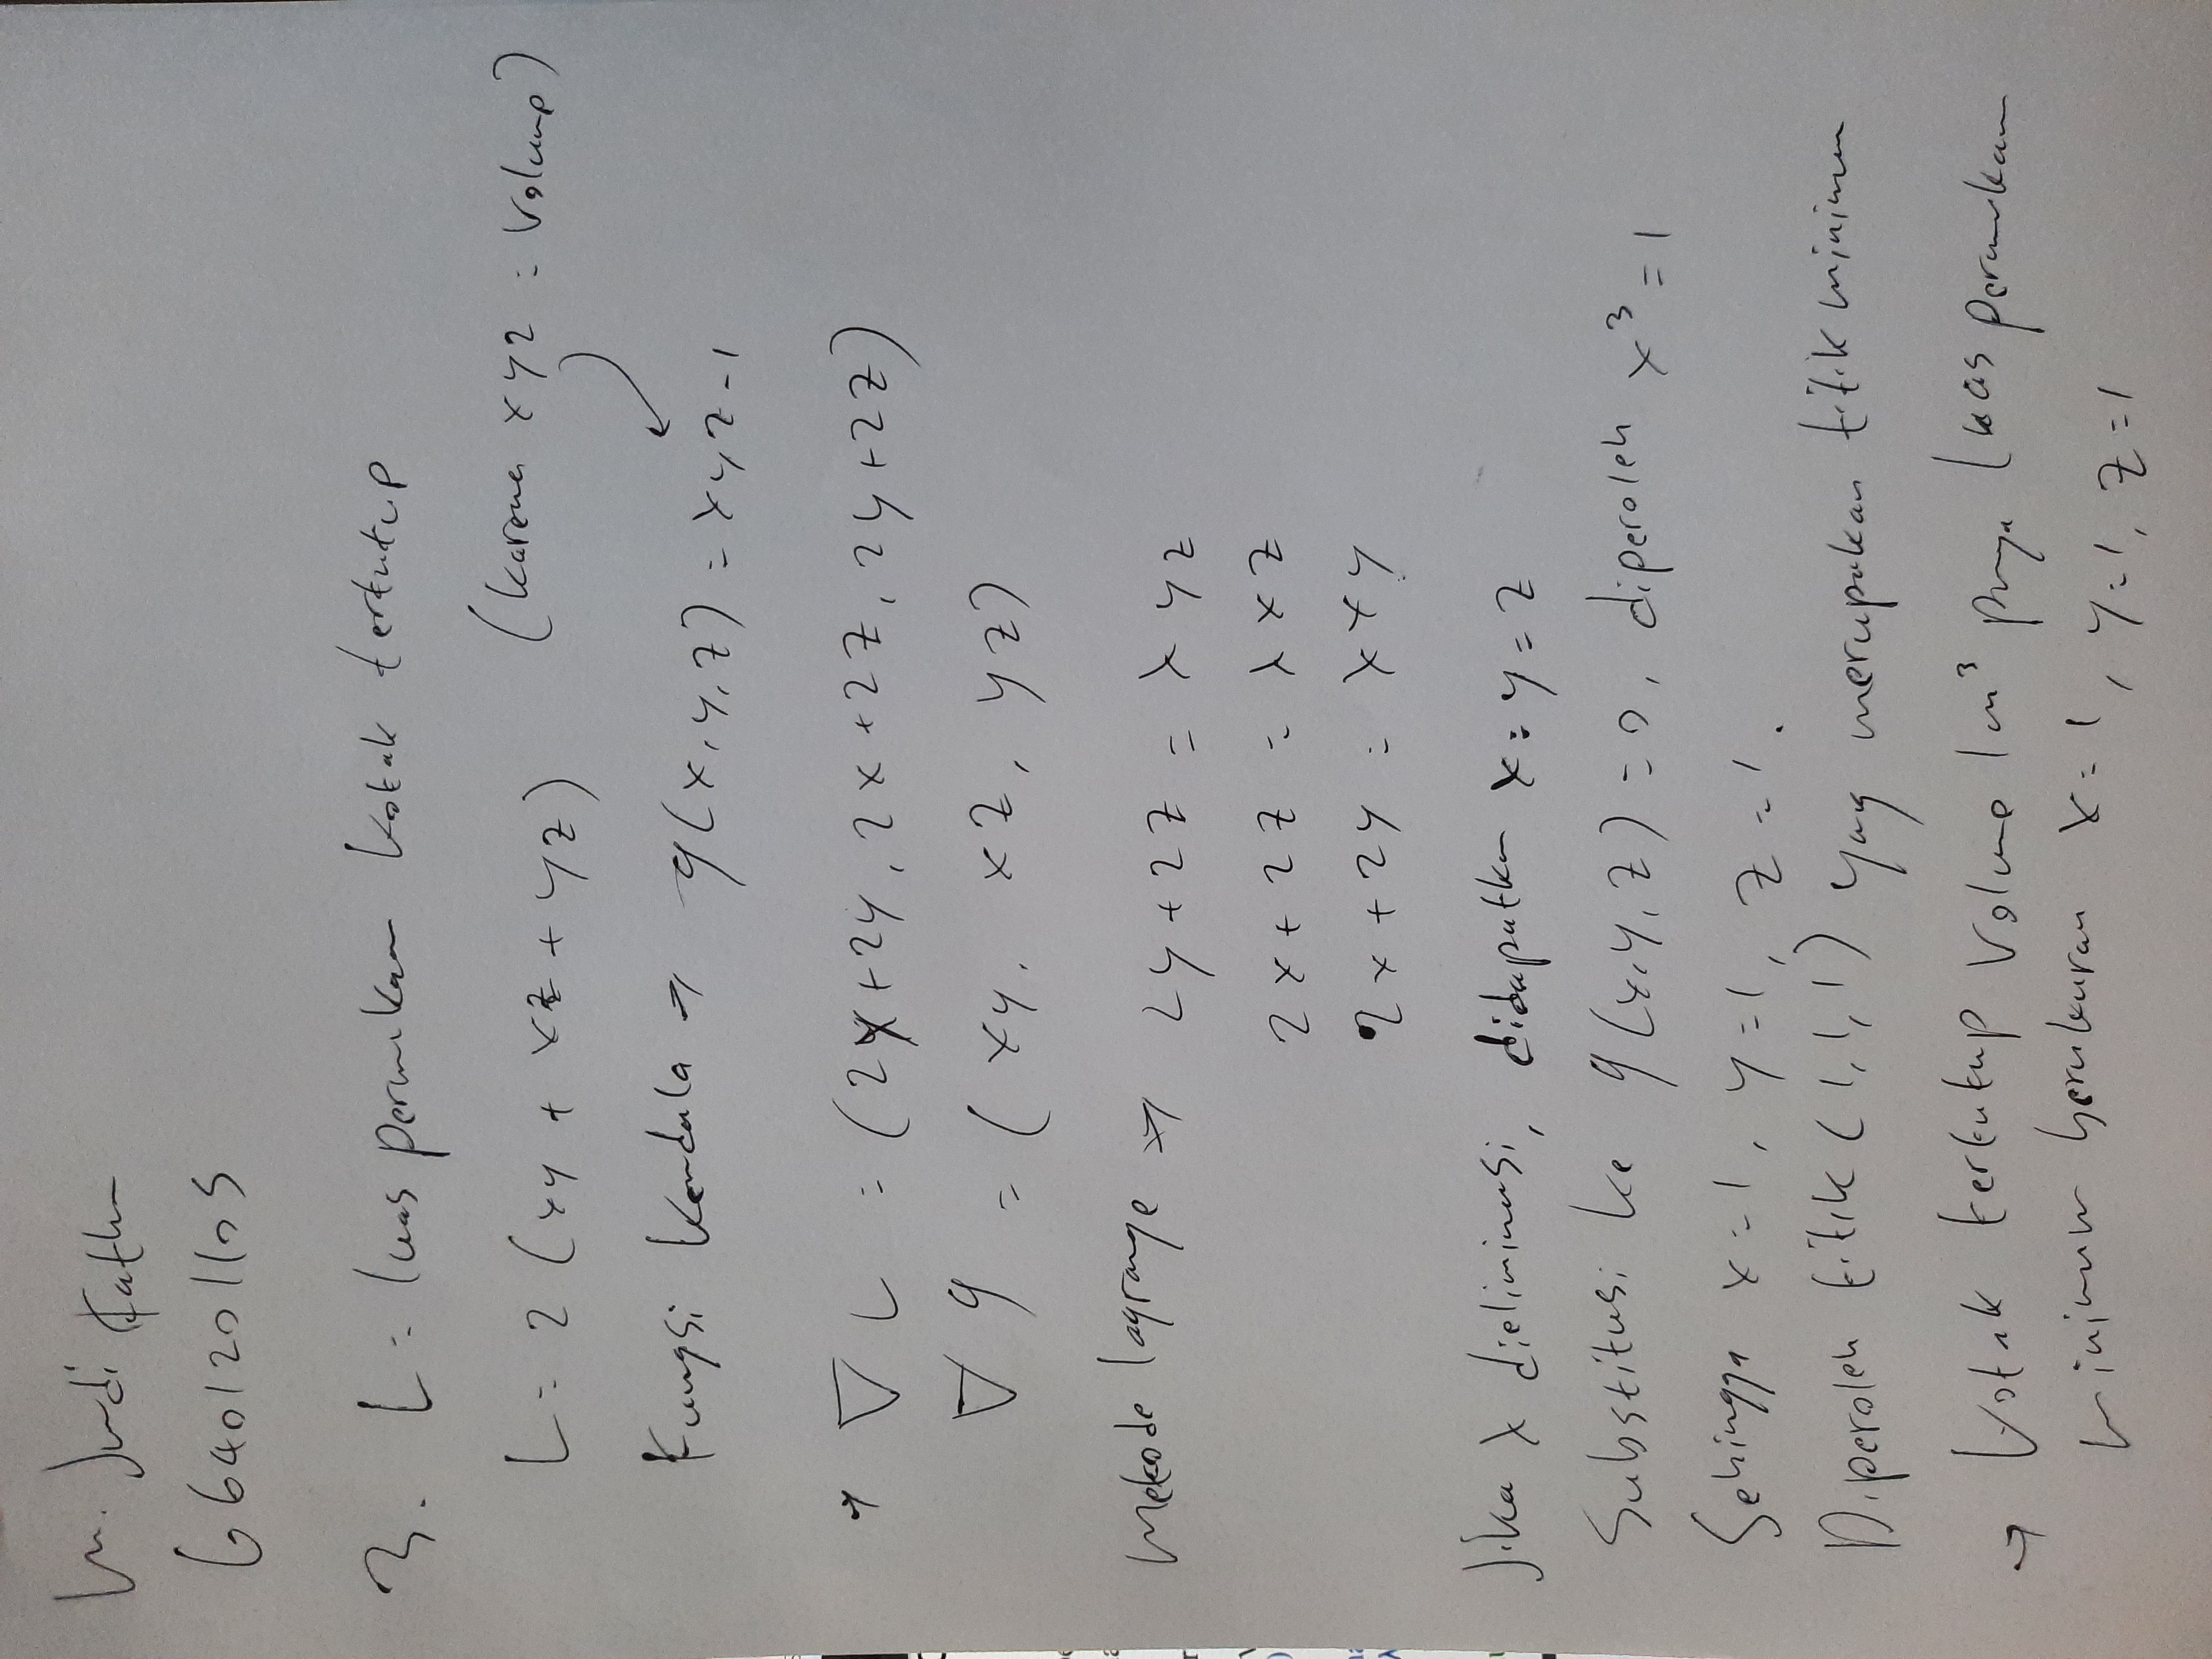 M. Judi Fathu
66401201105
3. L = luas permukaan kotak tertutup
L = 2 (xy + xz + yz) (karena xyz = Volume)
Fungsi Kendala → g(x,y,z) = xyz-1
→ ∇L = (2x+2y, 2x+2z, 2y+2z)
∇g = (xy, xz, yz)
Metode lagrange → 2y+2z = λyz
2x+2z = λxz
2x+2y = λxy
Jika λ dieliminasi, didapatkan x=y=z
Substitusi ke g(x,y,z)=0, diperoleh x³=1
Sehingga x=1, y=1, z=1.
Diperoleh titik (1,1,1) yang merupakan titik minimum
→ Kotak tertutup Volume 1 m³ punya luas permukaan
minimum berukuran x=1, y=1, z=1